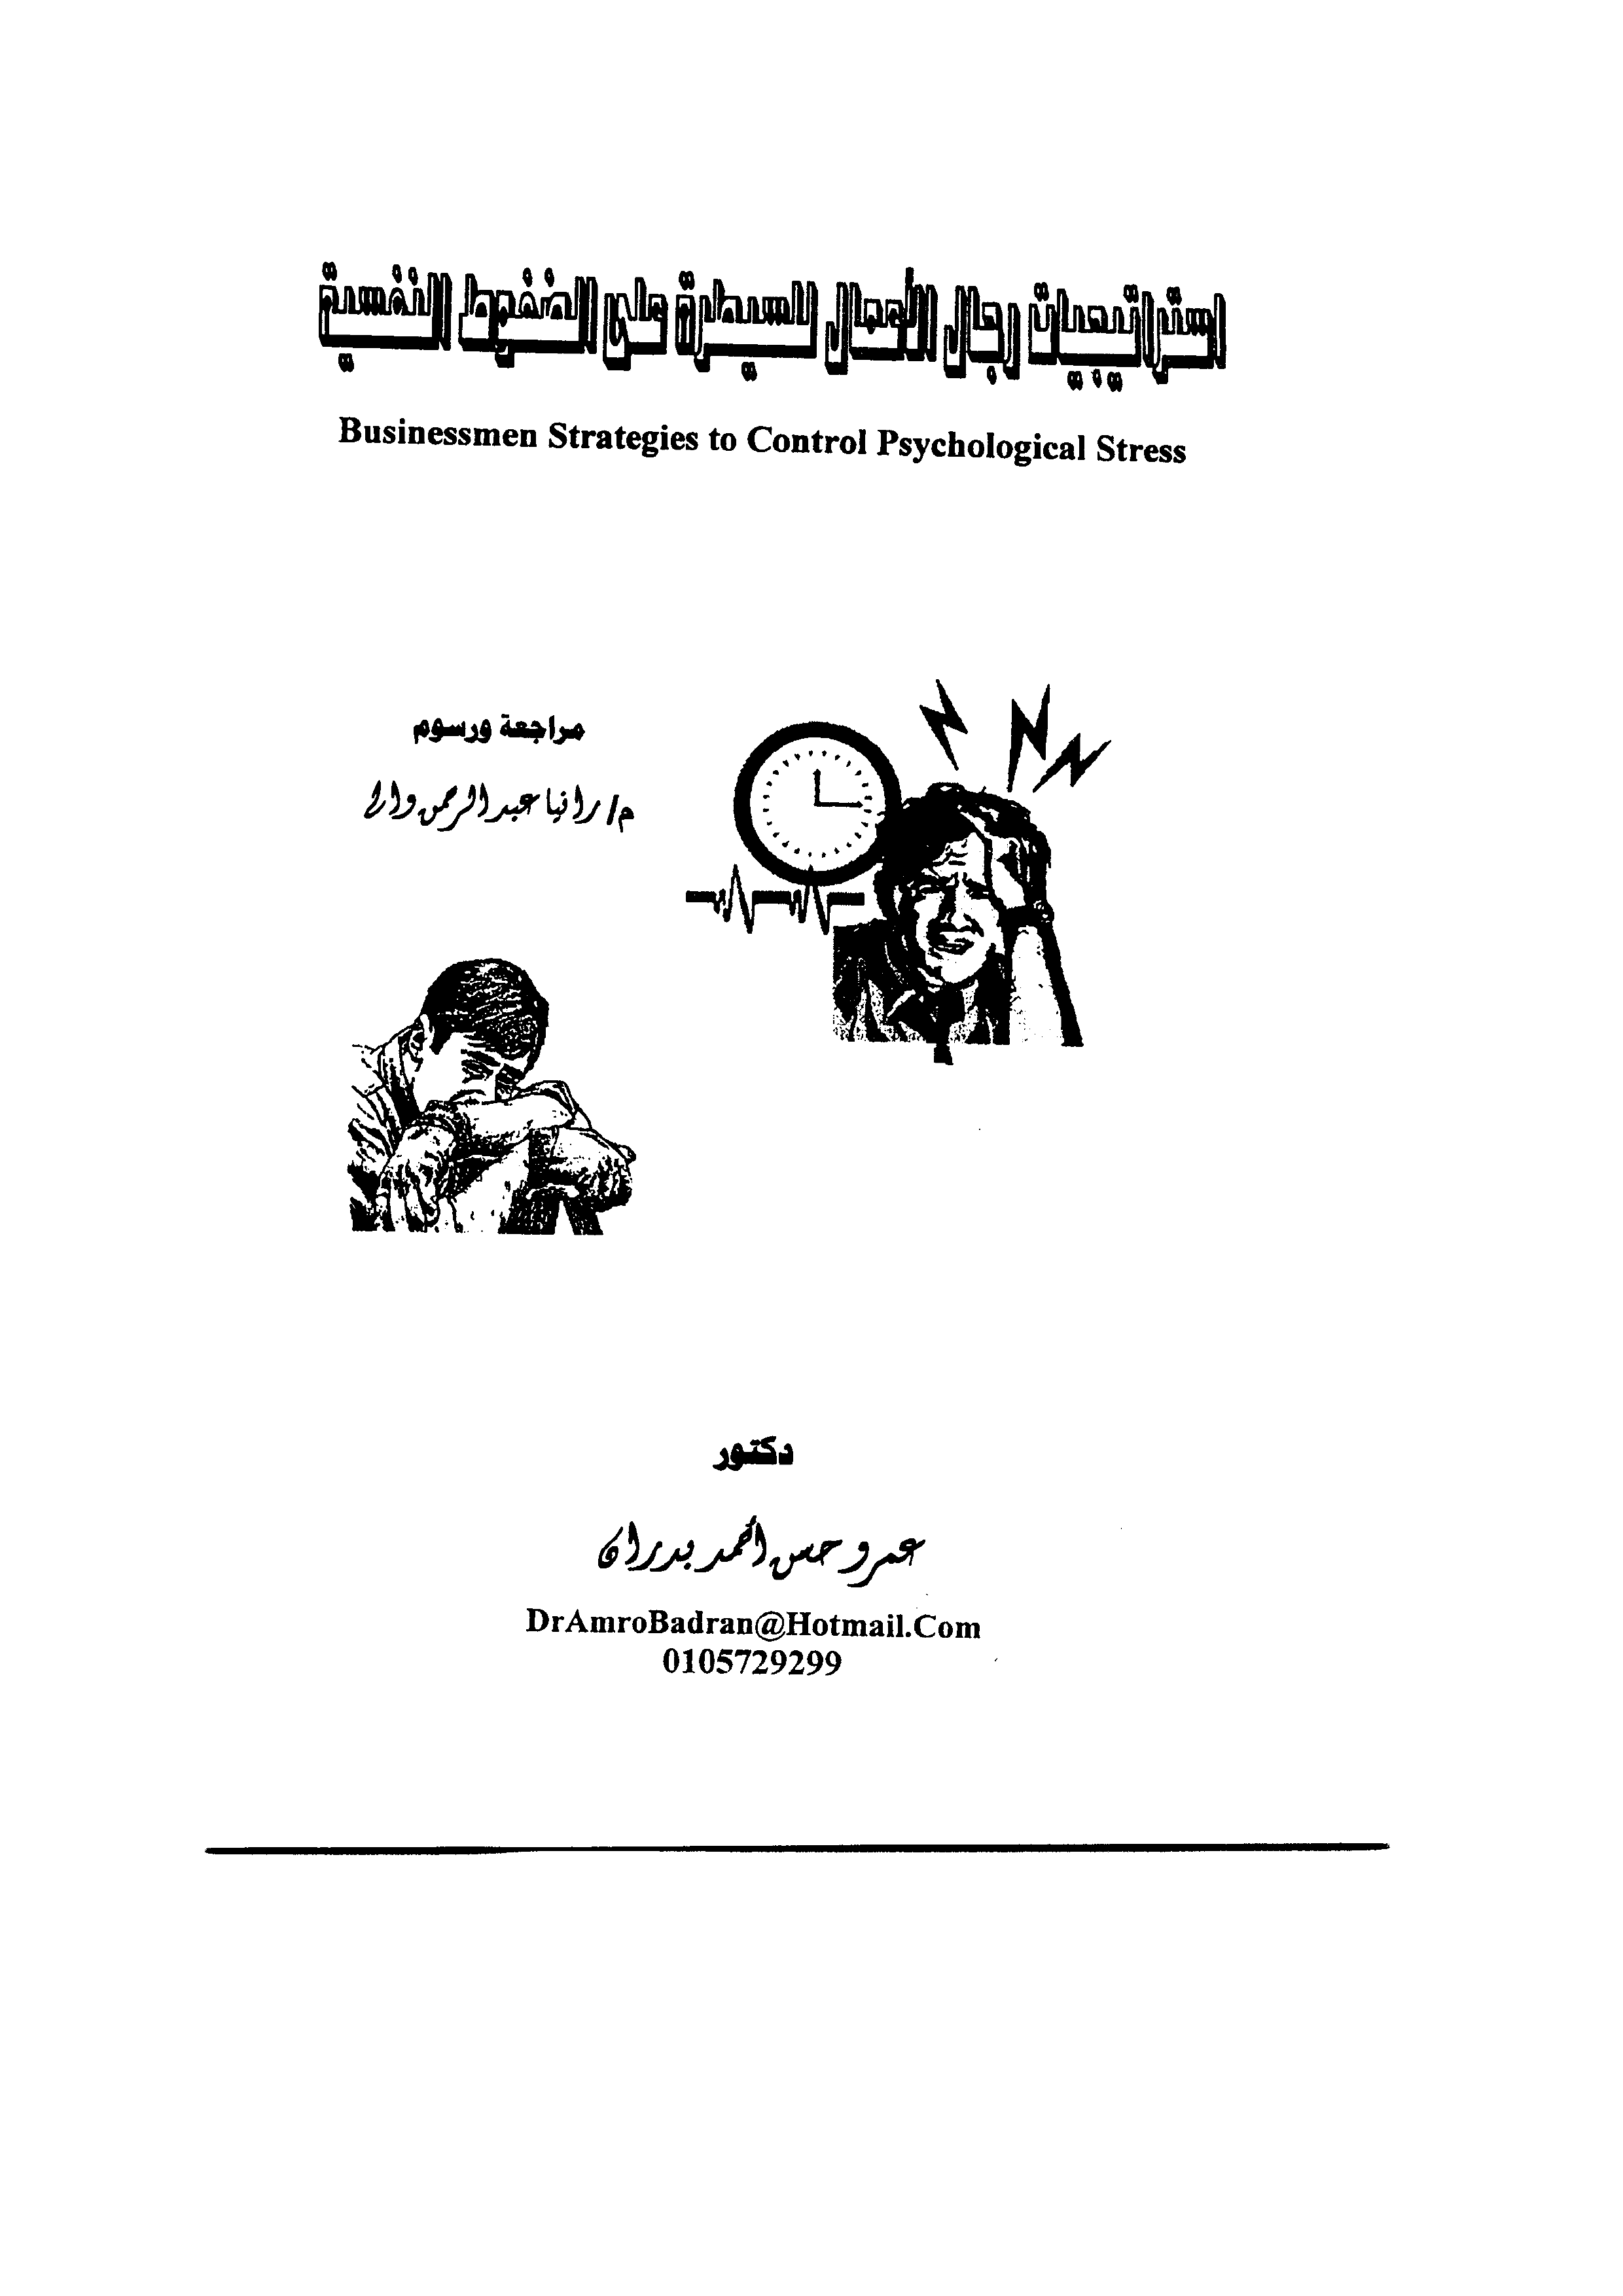 استراتيجيات رجال الأعمال للسيطرة على الضغوط النفسية
Businessmen Strategies to Control Psychological Stress
مراجعة ورسوم
م/ رانيا عبدالرحمن
دكتور
عمرو حسن أحمد بدران
DrAmroBadran@Hotmail.Com
0105729299